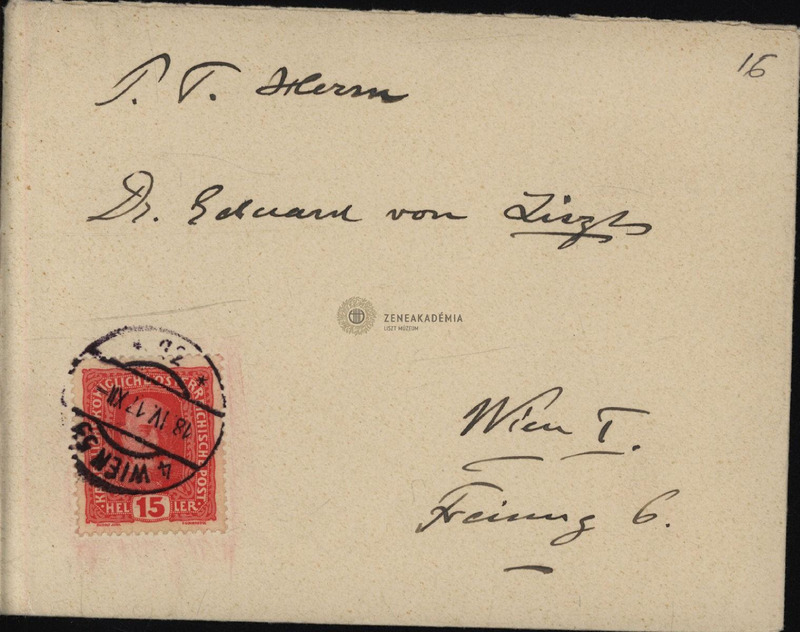 16
P. T. Herrn
Dr. Eduard von Liszt
ZENEAKADÉMIA
LISZT MÚZEUM
Wien I.
Freiung 6.
KÖNIGLICHE ÖSTERREICHISCHE POST
4 WIEN 55
18 IV 17 XII
15
HELLER